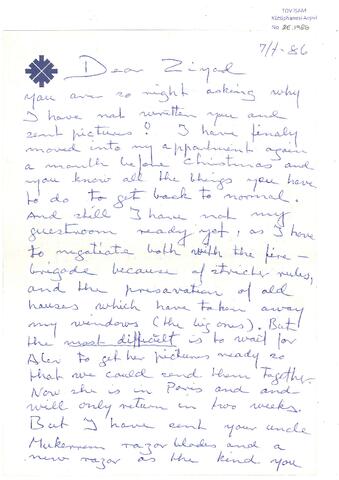 TDV İSAM
Kütüphanesi Arşivi
No 2E.1986
7/1-86
Dear Ziyad
you are so right asking why
I have not written you and
sent pictures? I have finaly
moved into my appartment again
a month before Christmas and
you know all the things you have
to do to get back to normal.
And still I have not my
guestroom ready yet, as I have
to negotiate both with the fire-
brigade because of stricter rules,
and the presavation of old
houses which have taken away
my windows (the big ones). But
the most difficult is to wait for
Alex to get her pictures ready so
that we could send them together.
Now she is in Paris and and
will only return in two weeks.
But I have sent your uncle
Mukerrem razor blades and a
new razor as the kind you